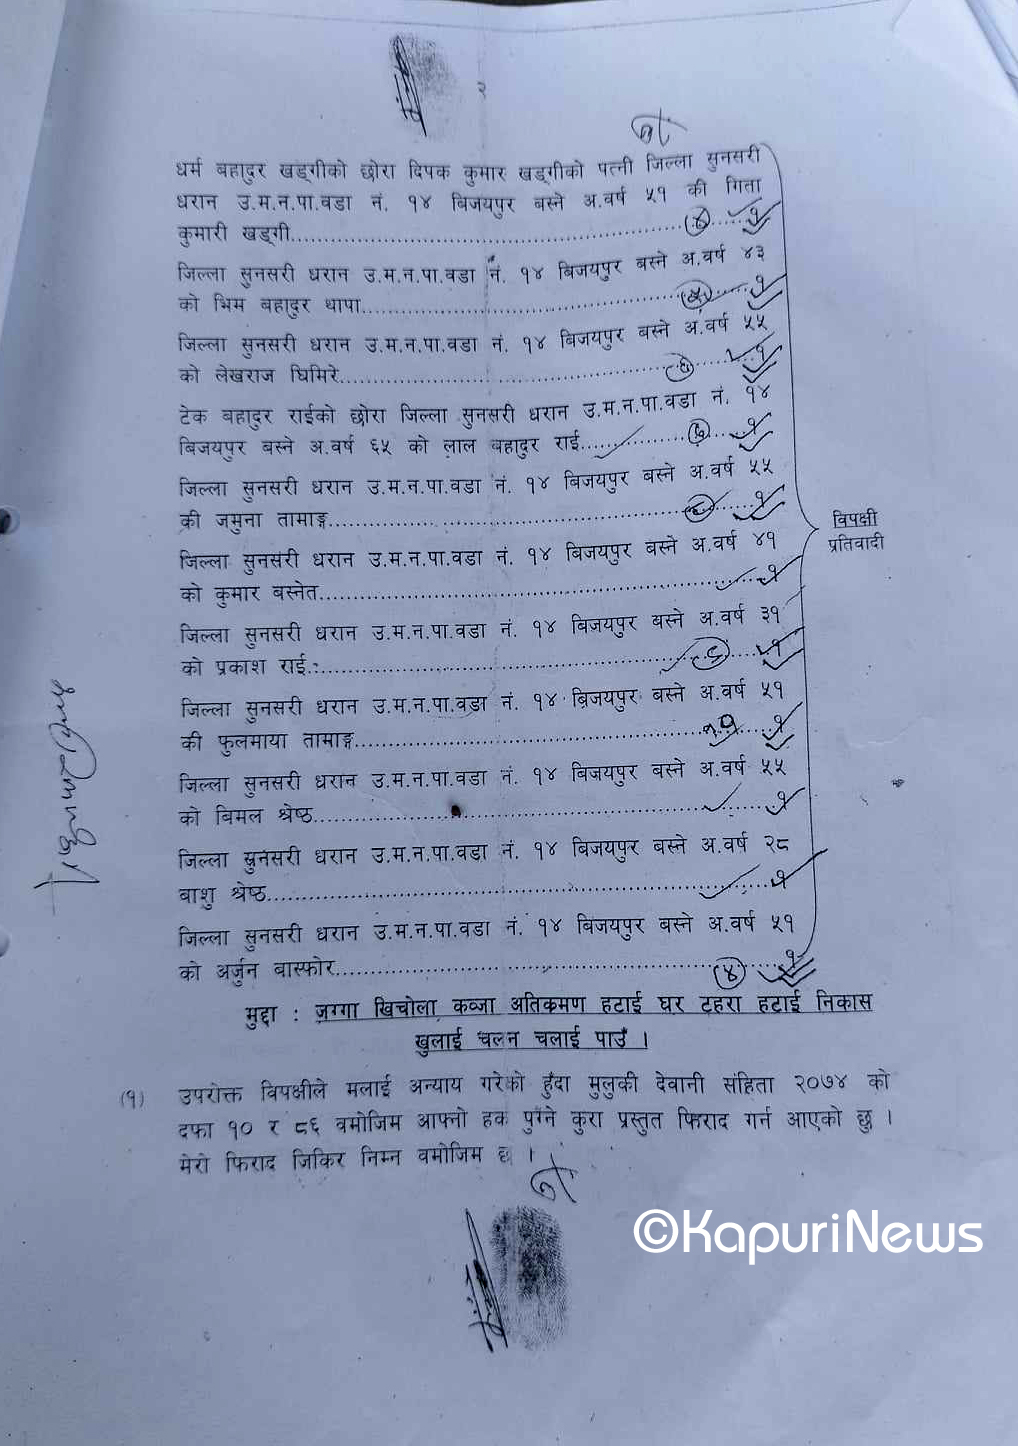 २
धर्म बहादुर खड्गीको छोरा दिपक कुमार खड्गीको पत्नी जिल्ला सुनसरी
धरान उ.म.न.पा.वडा नं. १४ बिजयपुर बस्ने अ.वर्ष ५१ की गिता
कुमारी खड्गी..........(४)....१
जिल्ला सुनसरी धरान उ.म.न.पा.वडा नं. १४ बिजयपुर बस्ने अ.वर्ष ४३
को भिम बहादुर थापा..........(५)....१
जिल्ला सुनसरी धरान उ.म.न.पा.वडा नं. १४ बिजयपुर बस्ने अ.वर्ष ५५
को लेखराज घिमिरे..........(६)....१
टेक बहादुर राईको छोरा जिल्ला सुनसरी धरान उ.म.न.पा.वडा नं. १४
बिजयपुर बस्ने अ.वर्ष ६५ को लाल बहादुर राई..........(७)....१
जिल्ला सुनसरी धरान उ.म.न.पा.वडा नं. १४ बिजयपुर बस्ने अ.वर्ष ५५
की जमुना तामाङ्ग..........(८)....१
विपक्षी
प्रतिवादी
जिल्ला सुनसरी धरान उ.म.न.पा.वडा नं. १४ बिजयपुर बस्ने अ.वर्ष ४१
को कुमार बस्नेत..........१
जिल्ला सुनसरी धरान उ.म.न.पा.वडा नं. १४ बिजयपुर बस्ने अ.वर्ष ३१
को प्रकाश राई..........(९)....१
जिल्ला सुनसरी धरान उ.म.न.पा.वडा नं. १४ बिजयपुर बस्ने अ.वर्ष ५१
की फुलमाया तामाङ्ग..........१
जिल्ला सुनसरी धरान उ.म.न.पा.वडा नं. १४ बिजयपुर बस्ने अ.वर्ष ५५
को बिमल श्रेष्ठ..........१
जिल्ला सुनसरी धरान उ.म.न.पा.वडा नं. १४ बिजयपुर बस्ने अ.वर्ष २८
बाशु श्रेष्ठ..........१
जिल्ला सुनसरी धरान उ.म.न.पा.वडा नं. १४ बिजयपुर बस्ने अ.वर्ष ५१
को अर्जुन बास्फोर..........(४)....१
मुद्दा : जग्गा खिचोला कब्जा अतिक्रमण हटाई घर टहरा हटाई निकास
खुलाई चलन चलाई पाउँ ।
(१) उपरोक्त विपक्षीले मलाई अन्याय गरेको हुँदा मुलुकी देवानी संहिता २०७४ को
दफा १० र ८६ वमोजिम आफ्नो हक पुग्ने कुरा प्रस्तुत फिराद गर्न आएको छु ।
मेरो फिराद जिकिर निम्न वमोजिम छ ।
©KapuriNews